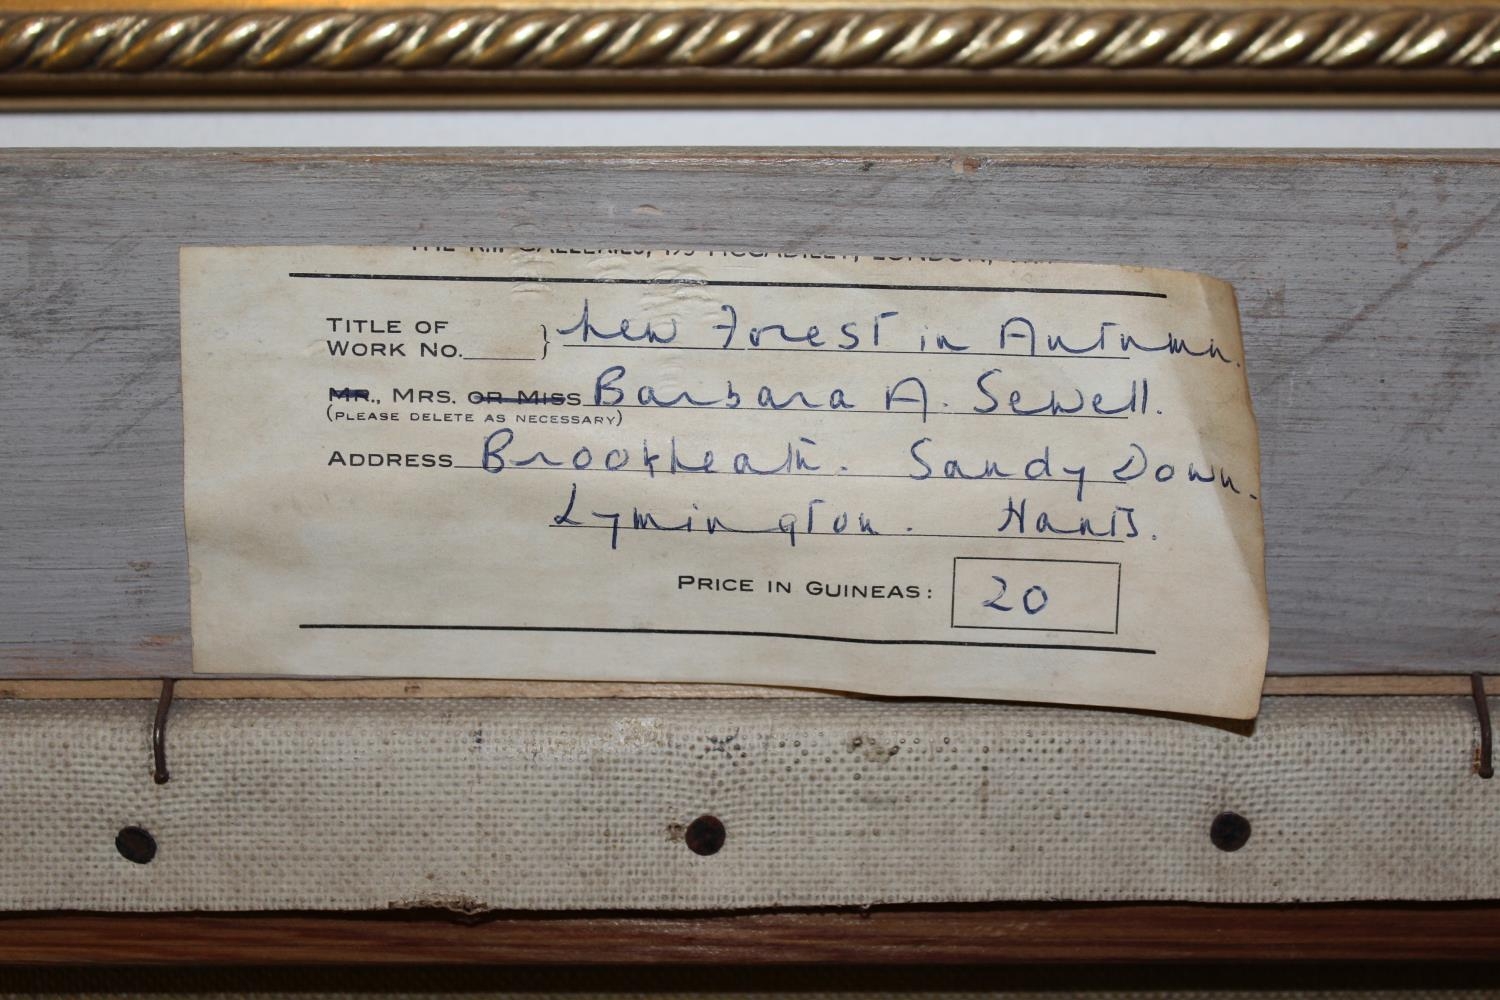 THE R.I. GALLERIES, 195 PICCADILLY, LONDON,
TITLE OF
WORK No. } New Forest in Autumn.
MR., MRS. OR MISS Barbara A. Sewell.
(PLEASE DELETE AS NECESSARY)
ADDRESS Brookheath. Sandy Down.
Lymington. Hants.
PRICE IN GUINEAS: 20